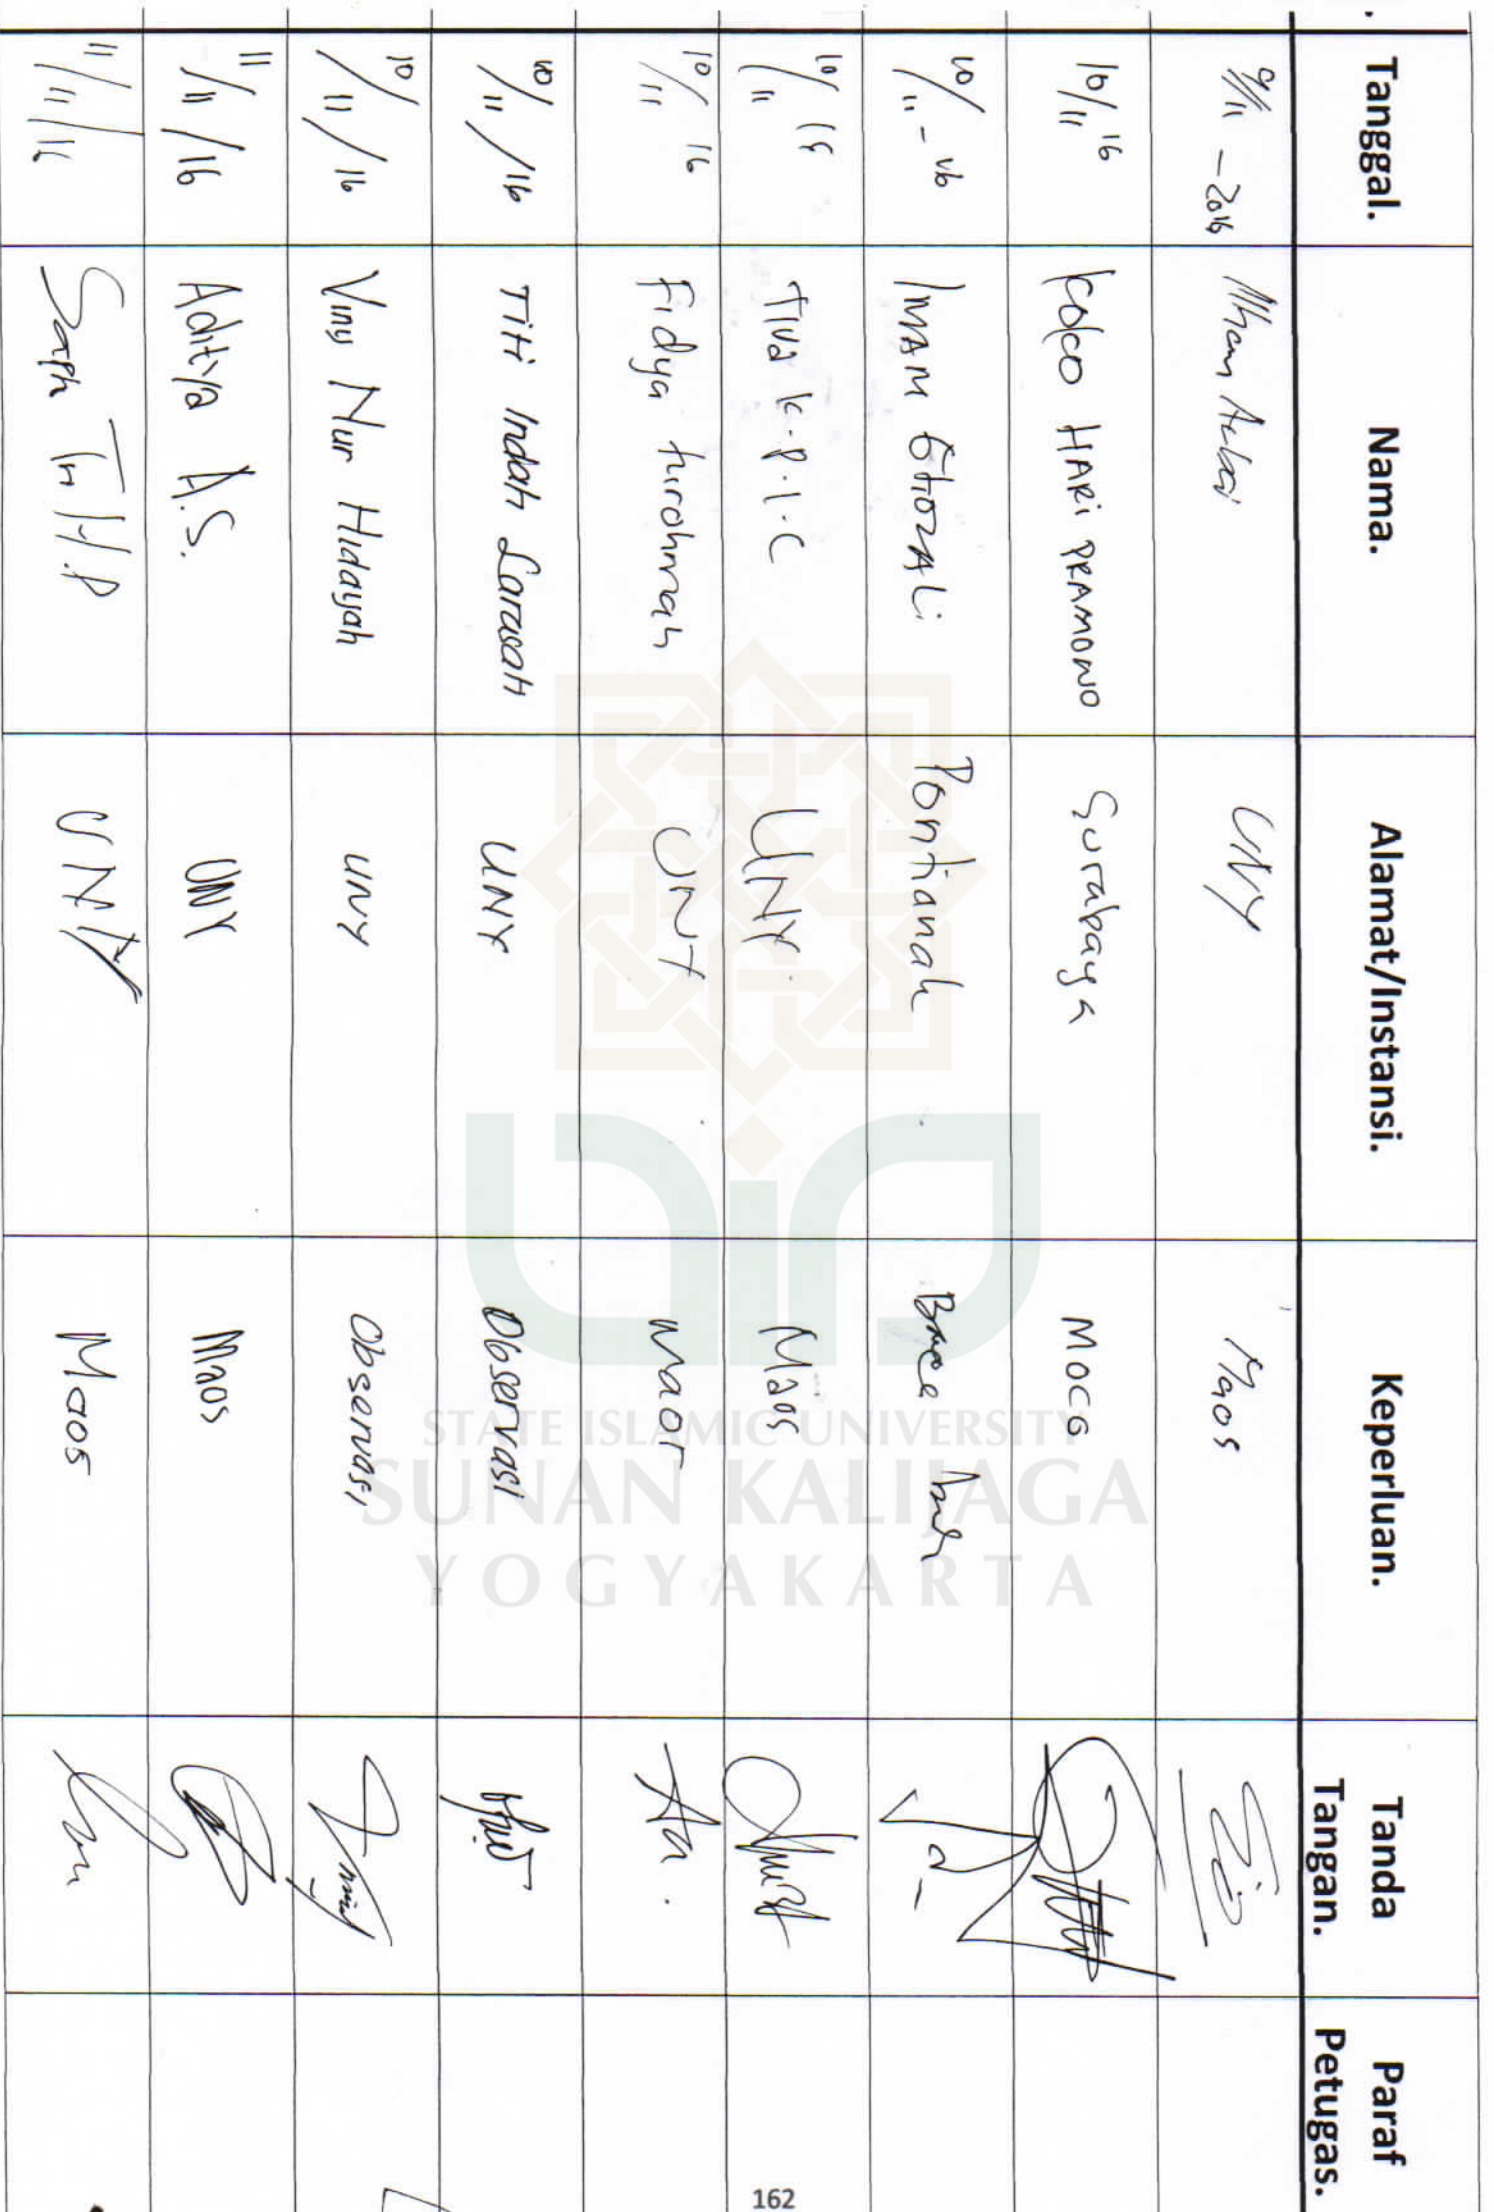 Tanggal. Nama. Alamat/Instansi. Keperluan. Tanda Tangan. Paraf Petugas.
9/11 - 2016 UNY Maos
10/11 16 KOCO HARI PRAMONO Surabaya MOCO
10/11 - 16 IMAM GHOZALi Pontianak
10/11 16 Tiva K.P.I.C UNY. Maos
10/11 16 Fidya UNY maos
10/11/16 Titi Indah Larasati UNY Observasi
10/11/16 Viny Nur Hidayah UNY Observasi
11/11/16 Aditya A.S. UNY Maos
11/11/16 UNY Maos
STATE ISLAMIC UNIVERSITY
SUNAN KALIJAGA
YOGYAKARTA
162